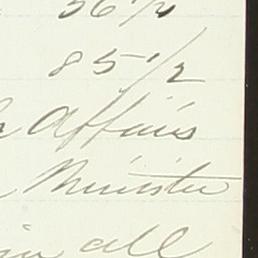 56 1/2
85 1/2
Affairs
Minister
in all